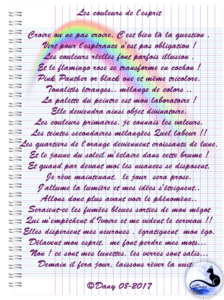 Les couleurs de l'esprit
Croire ou ne pas croire, C'est bien là la question .
Vert pour l'espérance n'est pas obligation !
Les couleurs réelles font parfois illusion ,
Et le flamingo rose se transforme en cochon !
Pink Panther or black one et même tricolore,
Tonalités étranges.. mélange de colors ..
La palette du peintre est mon laboratoire !
Elle deviendra ainsi objet divinatoire.
Les couleurs primaires, je connais les valeurs,
Les teintes secondaires mélangées Quel labeur !!
Les quartiers de l'orange deviennent croissants de lune,
Et le jaune du soleil m'éclaire dans cette brume !
Et quand par devant moi les nuances se disposent,
Je rêve maintenant, le jour sera prose.
J'allume la lumière et mes idées s'éteignent..
Allons donc plus avant voir le phénomène..
Seraient-ce les fumées bleues sorties de mon mégot
Qui m'empêchent d'Ivoire et me vident le cerveau !!
Elles dispersent mes neurones , égratignent mon égo,
Délavent mon esprit, me font perdre mes mots...
Non ! ce sont mes lunettes, les verres sont salis...
Demain il fera jour, laissons rêver la nuit
©Dany 08-2017